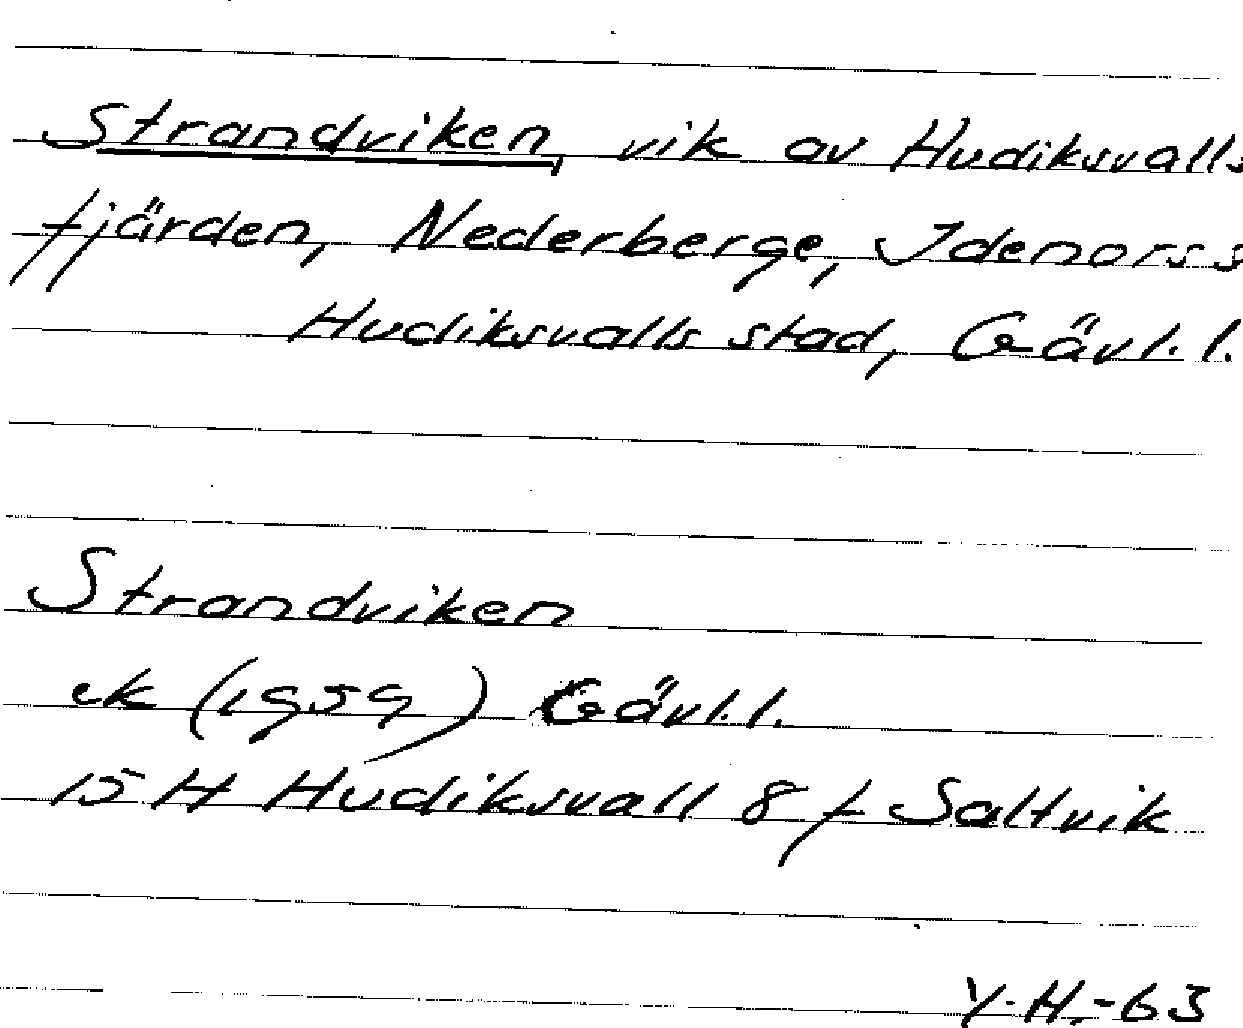 Strandviken, vik av Hudiksvalls
fjärden, Nederberge, Idenors s
Hudiksvalls stad, Gävl. l.
Strandviken
ek (1959) Gävl. l.
15 H Hudiksvall 8 f Saltvik
Y. H. -63